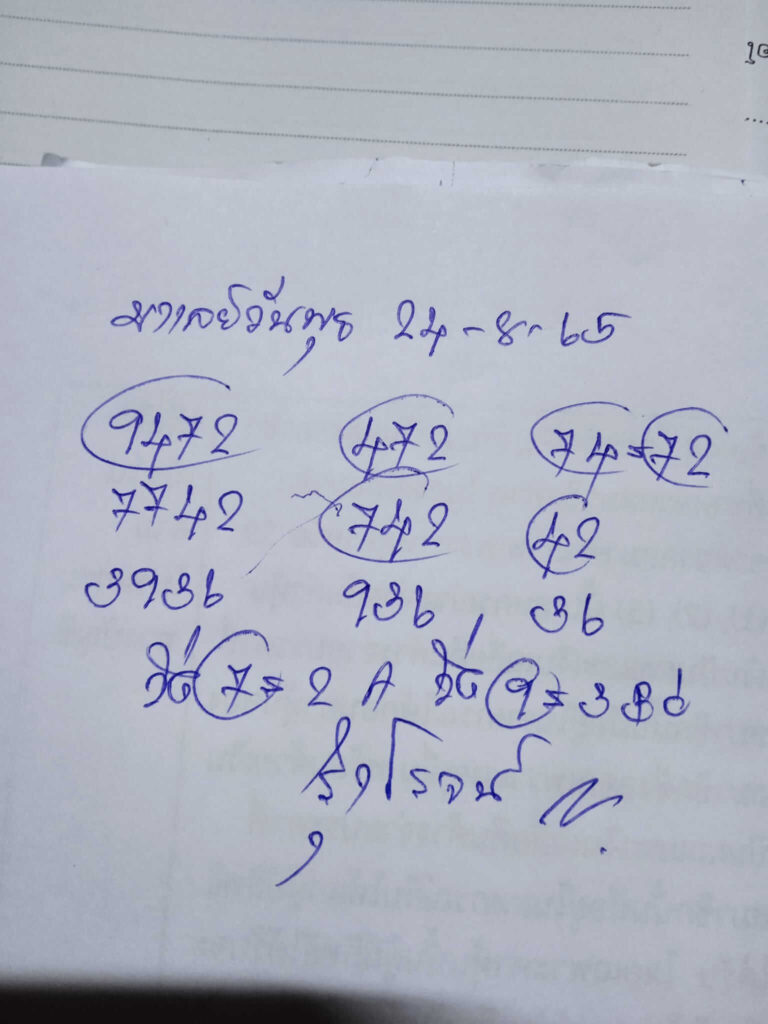 มาเลย์วันพุธ 24-8-65
9472 472 74=72
7742 742 42
3936 936 36
วิ่ง 7=2 A วิ่ง 9=3 B